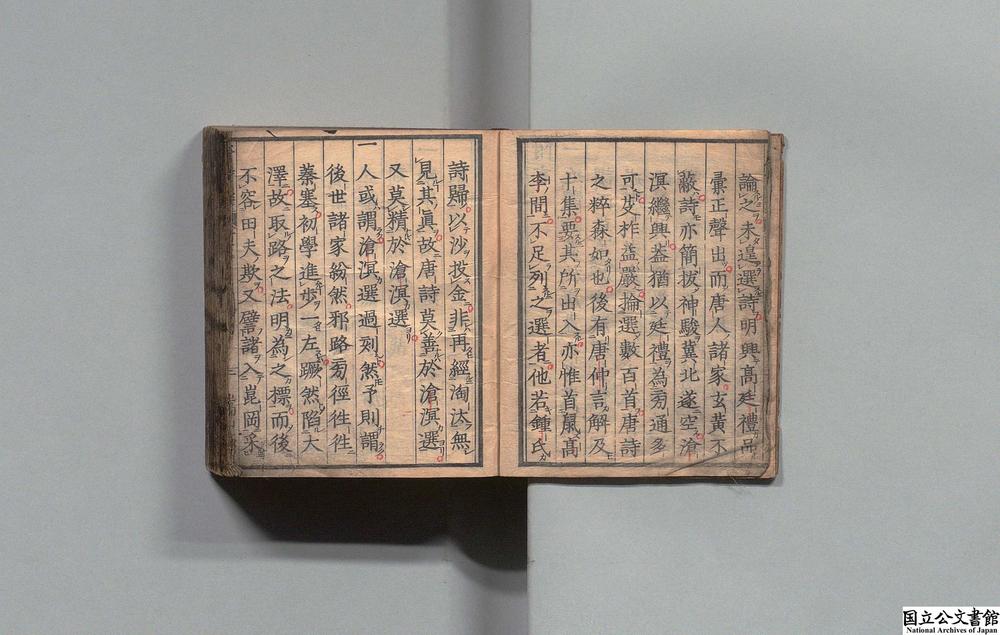 論之未遑選詩明興高廷禮品
彙正聲出而唐人諸家玄黃不
蔽詩亦簡拔神駿冀北遂空滄
溟繼興盖猶以廷禮為旁通多
可芟柞益嚴掄選數百首唐詩
之粹森如也後有唐仲言解及
十集要其所出入亦惟首鼠高
李間不足列之選者他若鍾氏
詩歸以沙投金非再經淘汰無
見其真故唐詩莫善於滄溟選
又莫精於滄溟選
一人或謂滄溟選過刻然予則謂
後世諸家紛然邪路旁徑徃徃
蓁塞初學進步一左蹶然陷大
澤故取路之法明為之標而後
不容田夫欺又譬諸入崑岡采
国立公文書館
National Archives of Japan